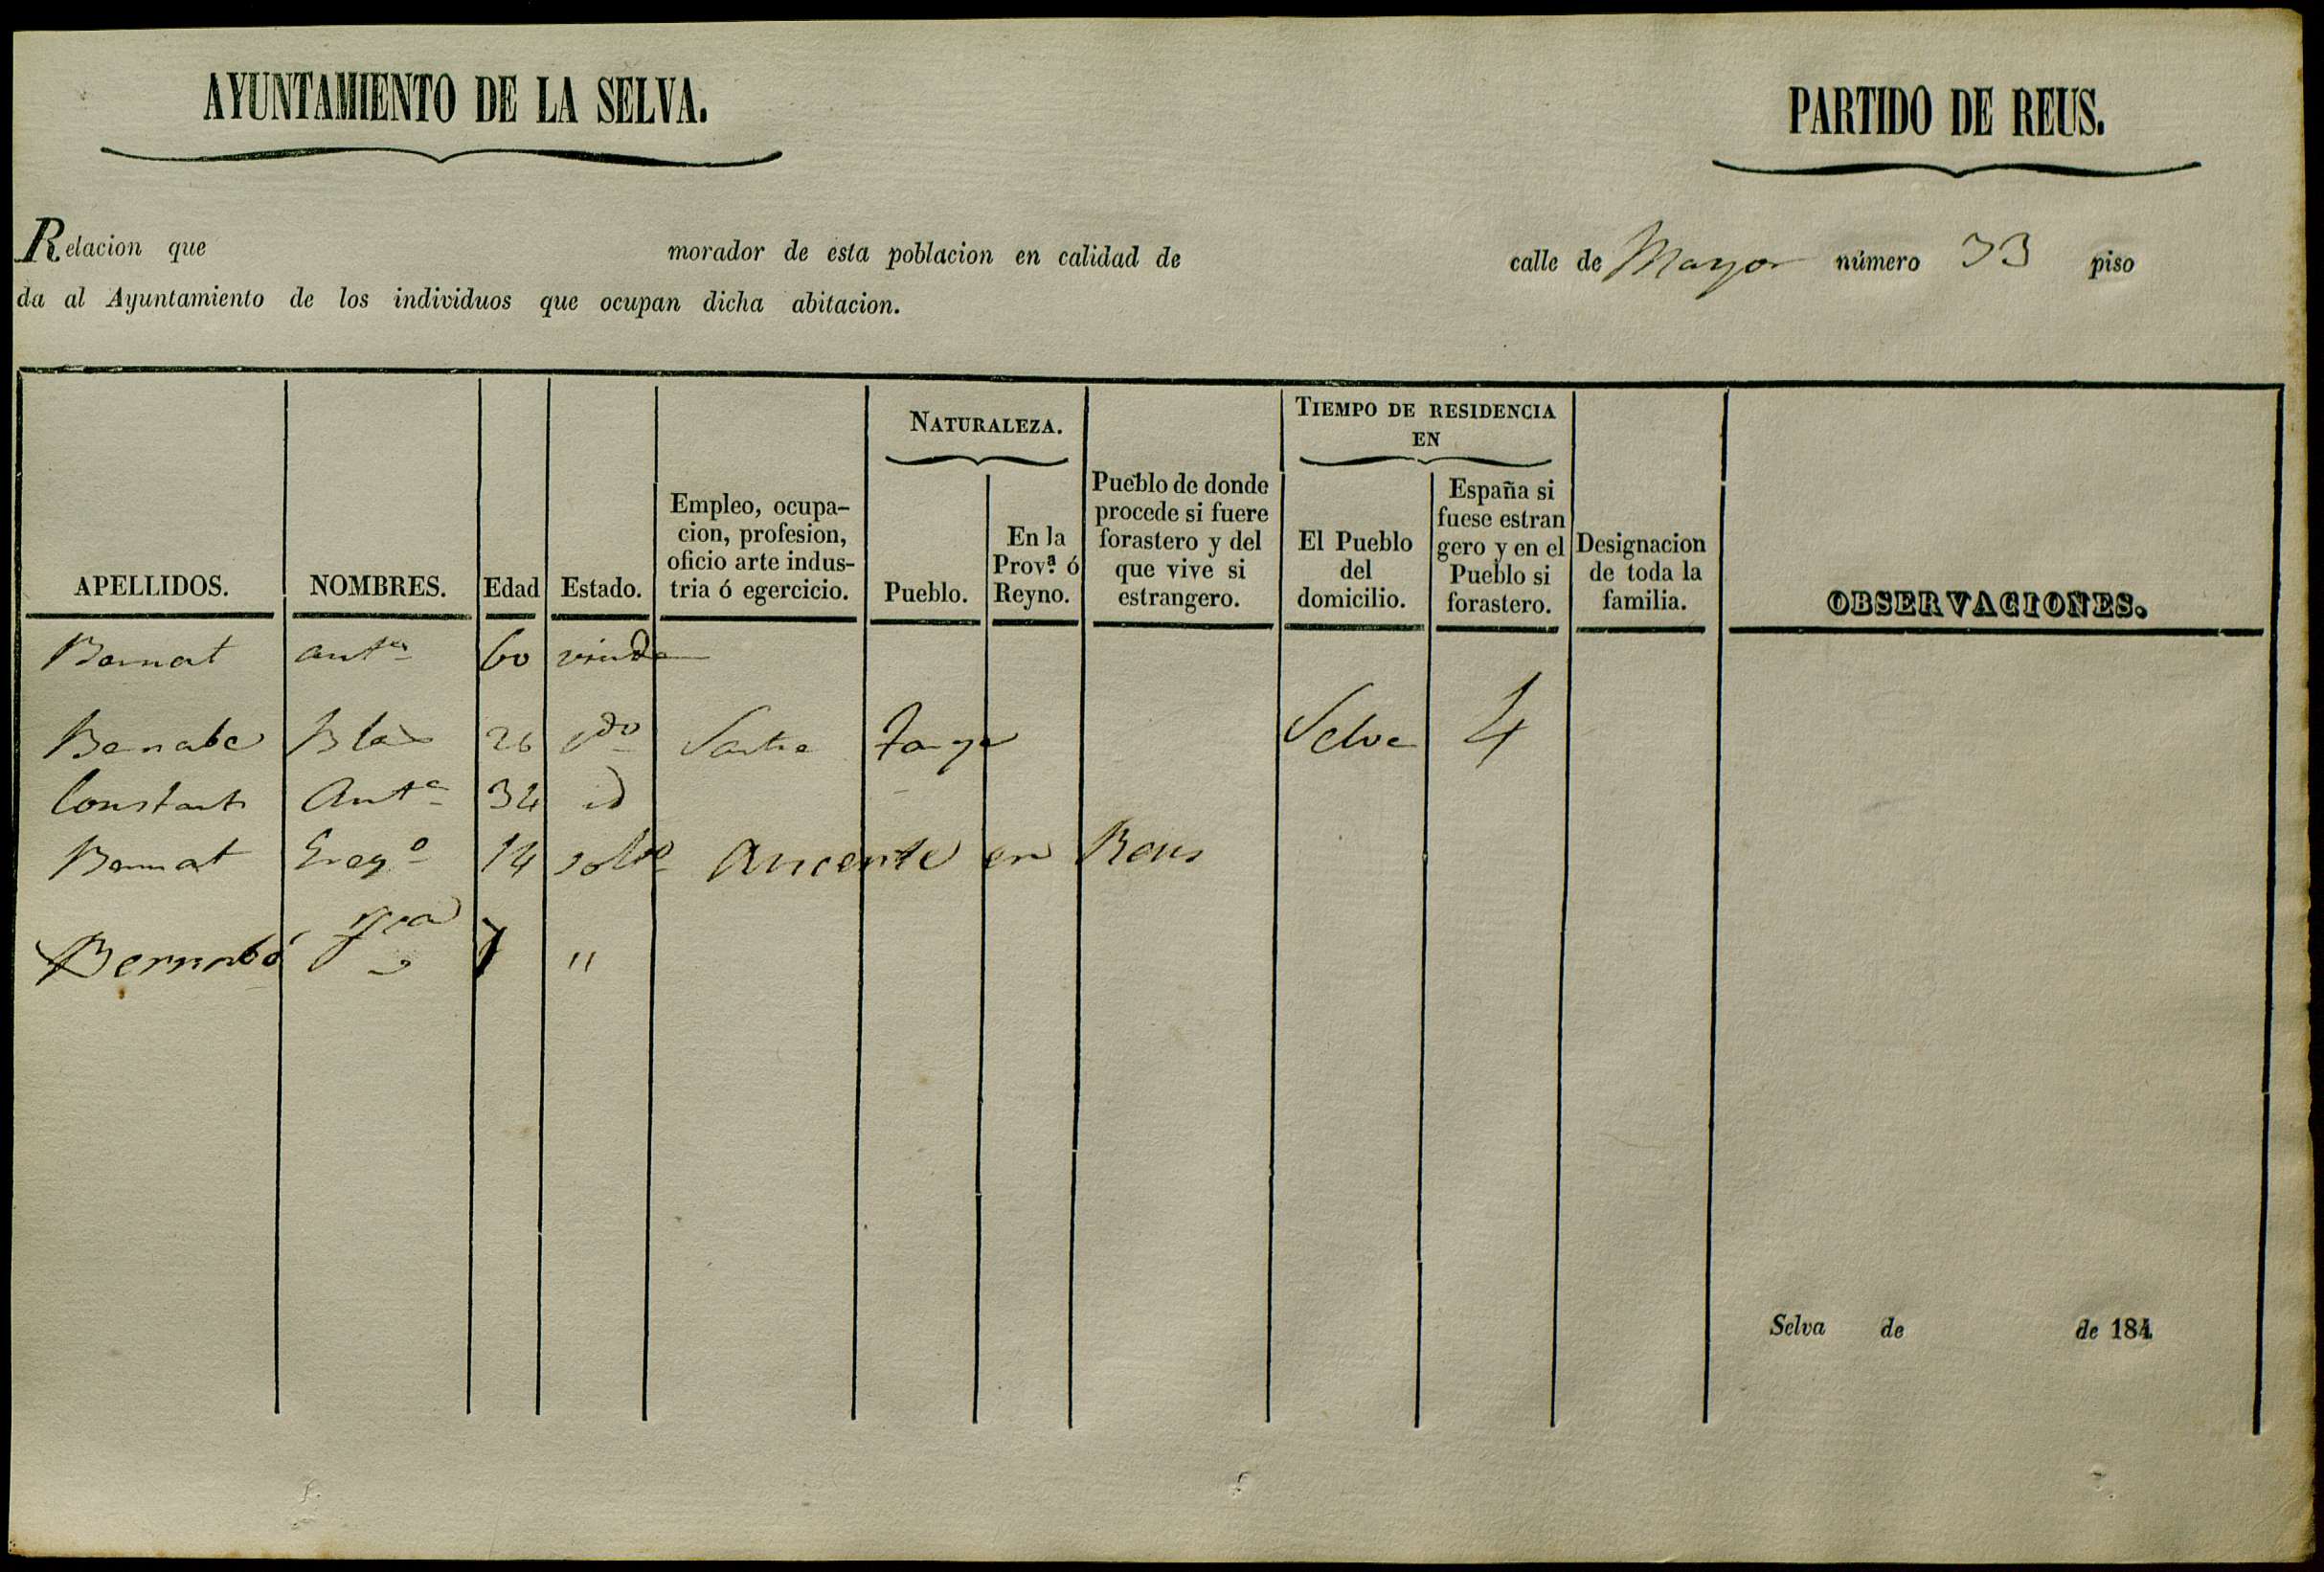 AYUNTAMIENTO DE LA SELVA.
PARTIDO DE REUS.
Relacion que morador de esta poblacion en calidad de calle de Mayor número 33 piso
da al Ayuntamiento de los individuos que ocupan dicha abitacion.
APELLIDOS.
NOMBRES.
Edad
Estado.
Empleo, ocupa-
cion, profesion,
oficio arte indus-
tria ó egercicio.
NATURALEZA.
Pueblo.
En la
Prov.ª ó
Reyno.
Pueblo de donde
procede si fuere
forastero y del
que vive si
estrangero.
TIEMPO DE RESIDENCIA
EN
El Pueblo
del
domicilio.
España si
fuese estran
gero y en el
Pueblo si
forastero.
Designacion
de toda la
familia.
OBSERVACIONES.
Bernat antª 60 viuda
Bernabe Blas 26 cdo Sastre Selva 4
Constanti Antª 34 id
Bernat Gregº 14 soltº Aucente en Reus
Bernabé 7 "
Selva de de 184